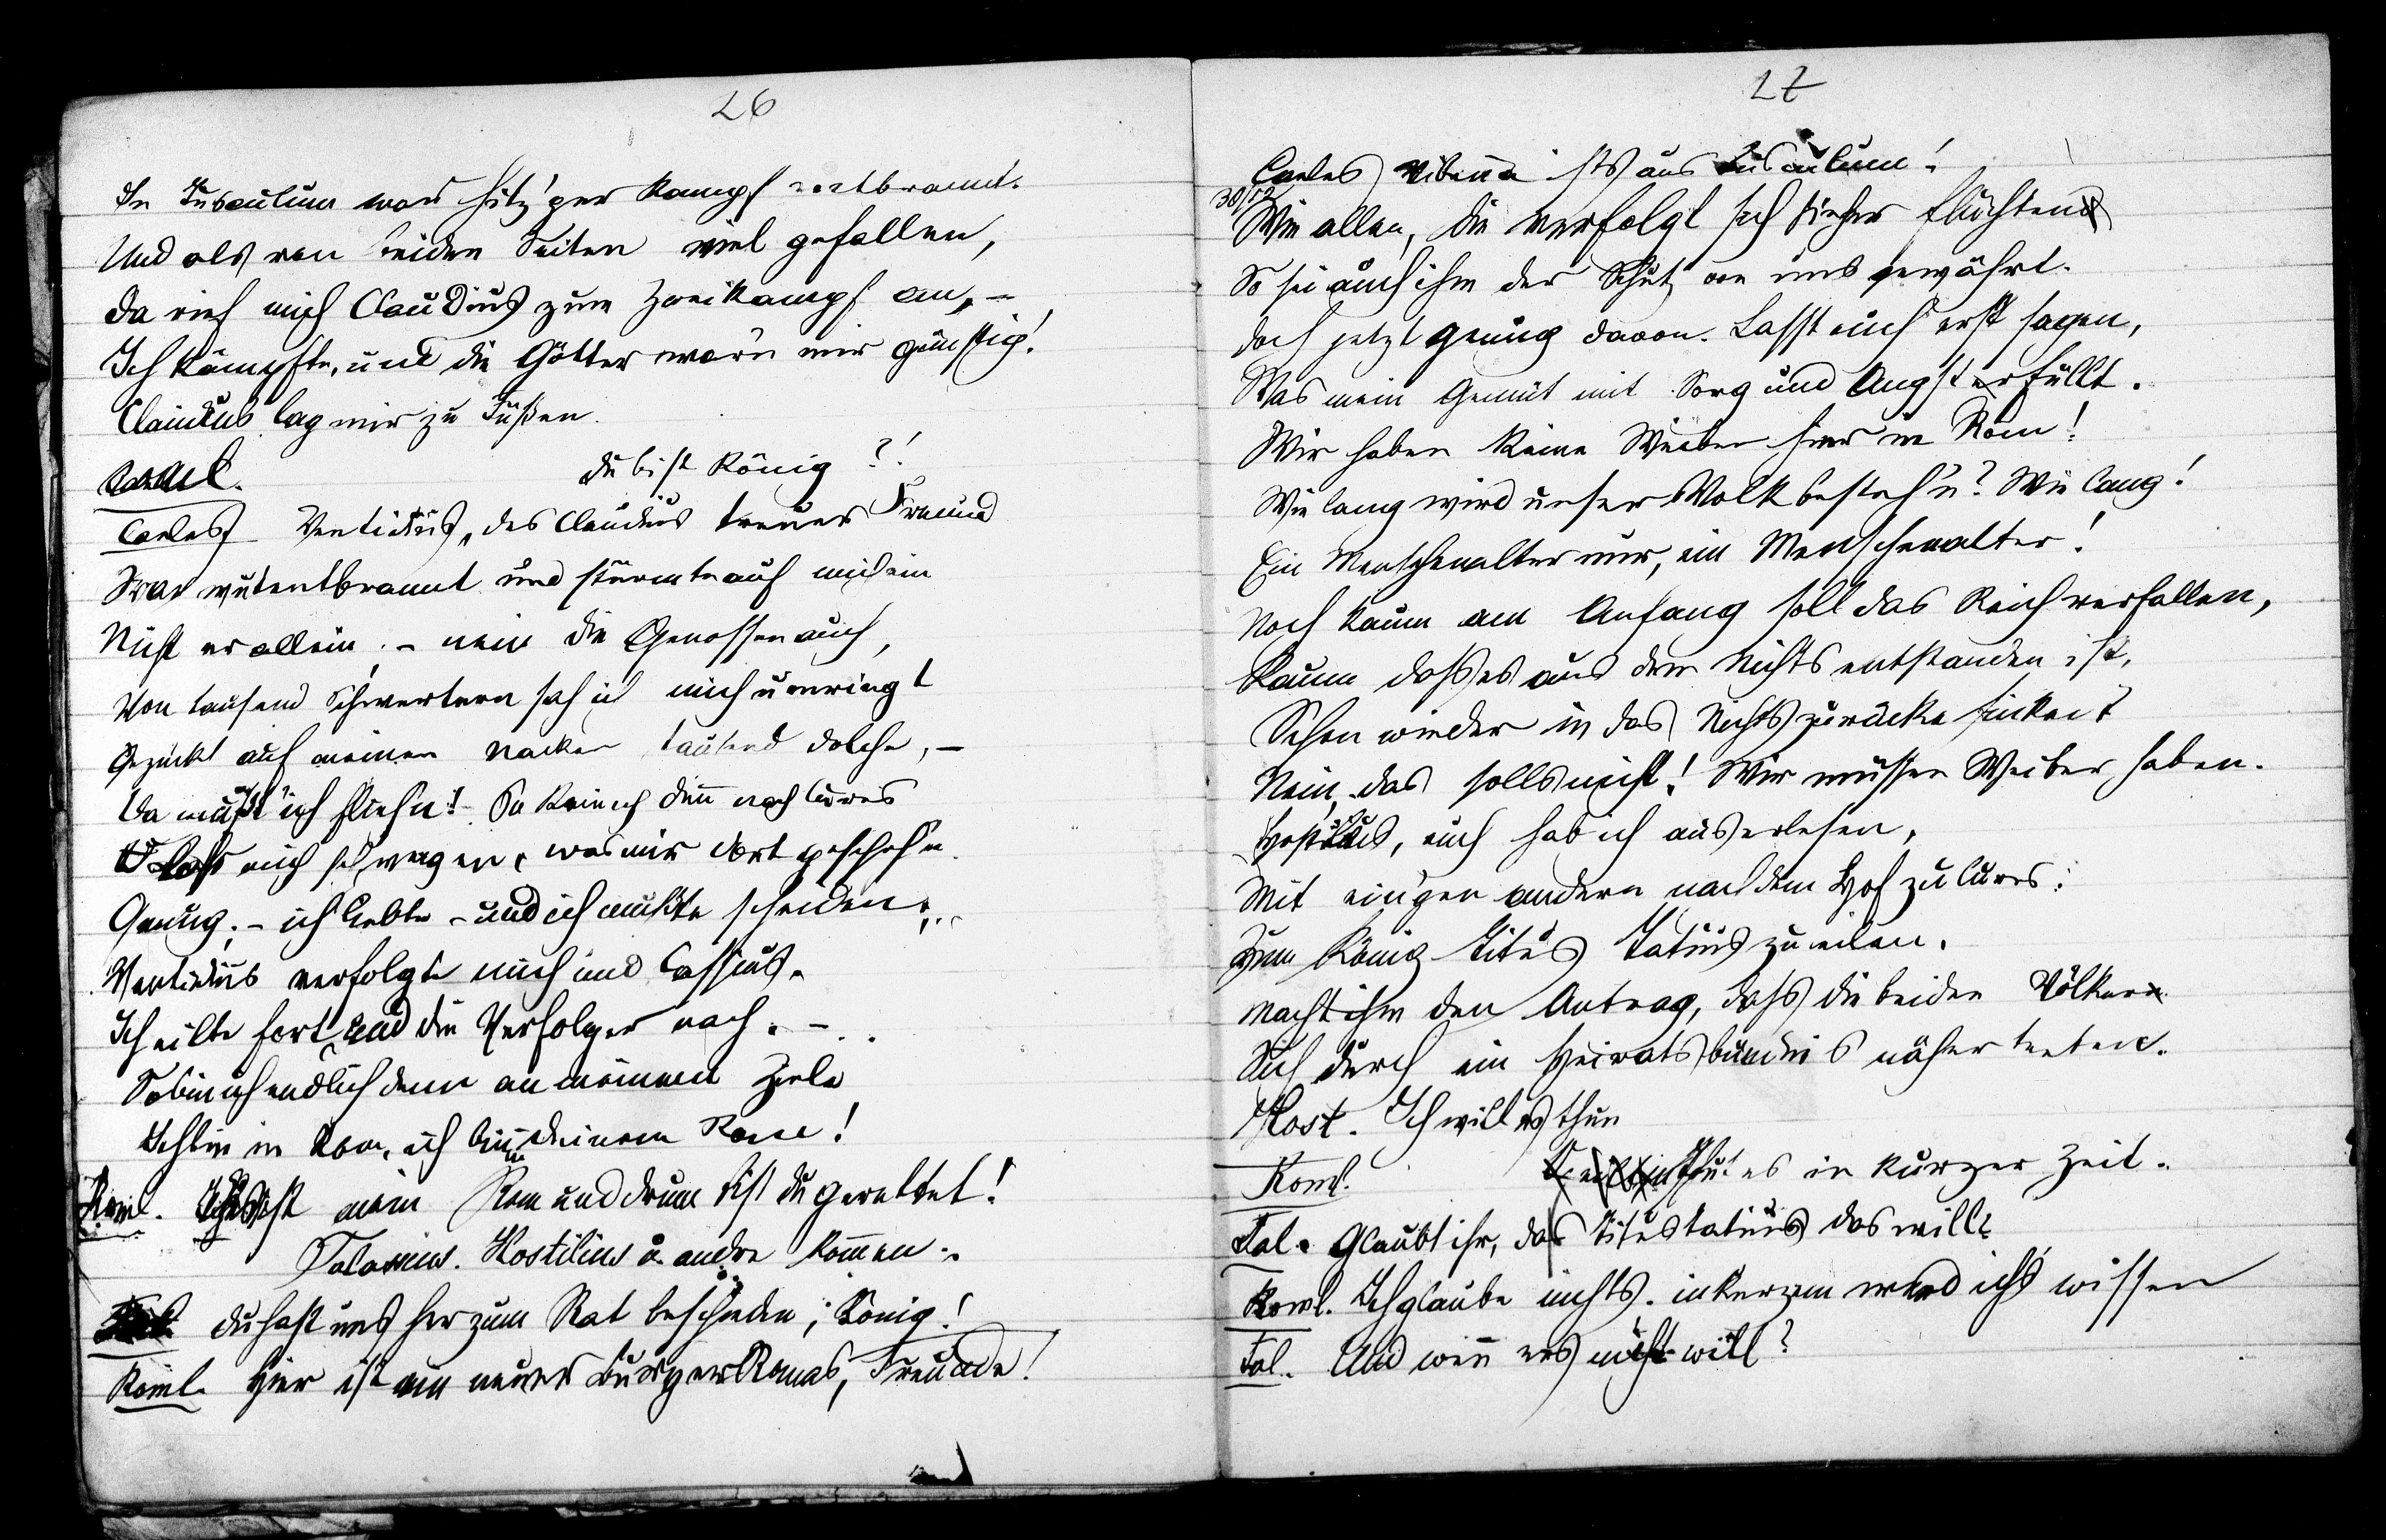 26
In Tusculum war hitz'ger Kampf entbrannt.
Und als von beiden Seiten viel gefallen,
da rief mich Claudius zum Zweikampf an, –
Ich kämpfte, und die Götter war'n mir günstig!
Claudius lag mir zu Füßen.
du bist König?!
Coeles Ventidius, des Claudius treuer Freund
War wutentbrannt und stürmte auf mich ein
Nicht er allein, – nein die Genossen auch,
Von tausend Schwertern sah ich mich umringt
Gezückt auf meinen Nacken tausend Dolche, –
da mußt' ich flieh'n! So kam ich denn nach Cures
O laßt mich schweigen, was mir dort gescheh'n.
Genug, – ich liebte – und ich mußte scheiden;..
Ventidius verfolgte mich und Cassius.
Ich eilte fort, und die Verfolger nach. –
So bin ich endlich denn an meinem Ziele
Ich bin in Rom, ich bin in deinem Rom!
Roml. Es ist mein Rom und drum bist du gerettet!
Talassius. Hostilius u. andre kommen.
du hast uns her zum Rat beschieden, König!
Roml. Hier ist ein neuer Bürger Romas, Freunde!
27
Coeles Vibenna ists aus Tusculum!
Wie allen, die verfolgt sich hieher flüchten
So sei auch ihm der Schutz von uns gewährt.
doch jetzt genug davon. Lasst euch erst sagen,
Was mein Gemüt mit Sorg und Angst erfüllt.
Wir haben keine Weiber hier in Rom!
Wie lang wird unser Volk besteh'n? Wie lang!
Ein Menschenalter nur, ein Menschenalter!
Noch kaum am Anfang soll das Reich verfallen,
Kaum dass es aus dem Nichts entstanden ist,
Schon wieder in das Nichts zurücke sinken?
Nein, das solls nicht! Wir müssen Weiber haben.
Hostilius, euch hab ich auserlesen,
Mit ein'gen andern nach dem Hof zu Cures
Zum König Titus Tatius zu eilen.
Macht ihm den Antrag, dass die beiden Völker
Sich durch ein Heiratsbündnis näher treten.
Host. Ich will es thun
Roml. Thut es in kurzer Zeit.
Tal. Glaubt ihr, das Titus Tatius das will?
Roml. Ich glaube nichts. in kurzem werd ichs wissen
Tal. Und wenn ers nicht will?